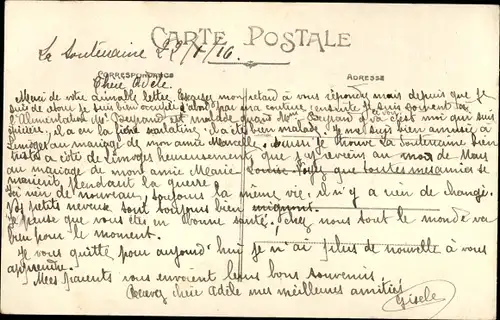 CARTE POSTALE
La Souterraine 22/1/16.
CORRESPONDANCE
ADRESSE
Chère Adèle
Merci de votre aimable lettre. Excusez mon retard à vous répondre mais depuis que je
suis de retour je suis bien occupée d'abord par ma couture; ensuite je suis souvent à
l'Alimentation Mr Beyrand est malade quand Mme Beyrand c'est moi qui suis
épicière, il a eu la fièvre scarlatine, il a été bien malade. Je me suis bien amusée à
Limoges au mariage de mon amie Marcelle. Aussi je trouve La Souterraine bien
triste à côté de Limoges heureusement que j'y reviens au mois de Mars
au mariage de mon amie Marie Louise. Voyez que toutes mes amies se
marient pendant la guerre!
Ici rien de nouveau, toujours la même vie, il n'y a rien de changé.
Vos petits neveux sont toujours bien mignons.
Je pense que vous êtes en bonne santé; chez nous tout le monde va
bien pour le moment.
Je vous quitte pour aujourd'hui je n'ai plus de nouvelle à vous
apprendre.
Mes parents vous envoient leurs bons souvenirs,
Recevez chère Adèle mes meilleures amitiés
Gisèle